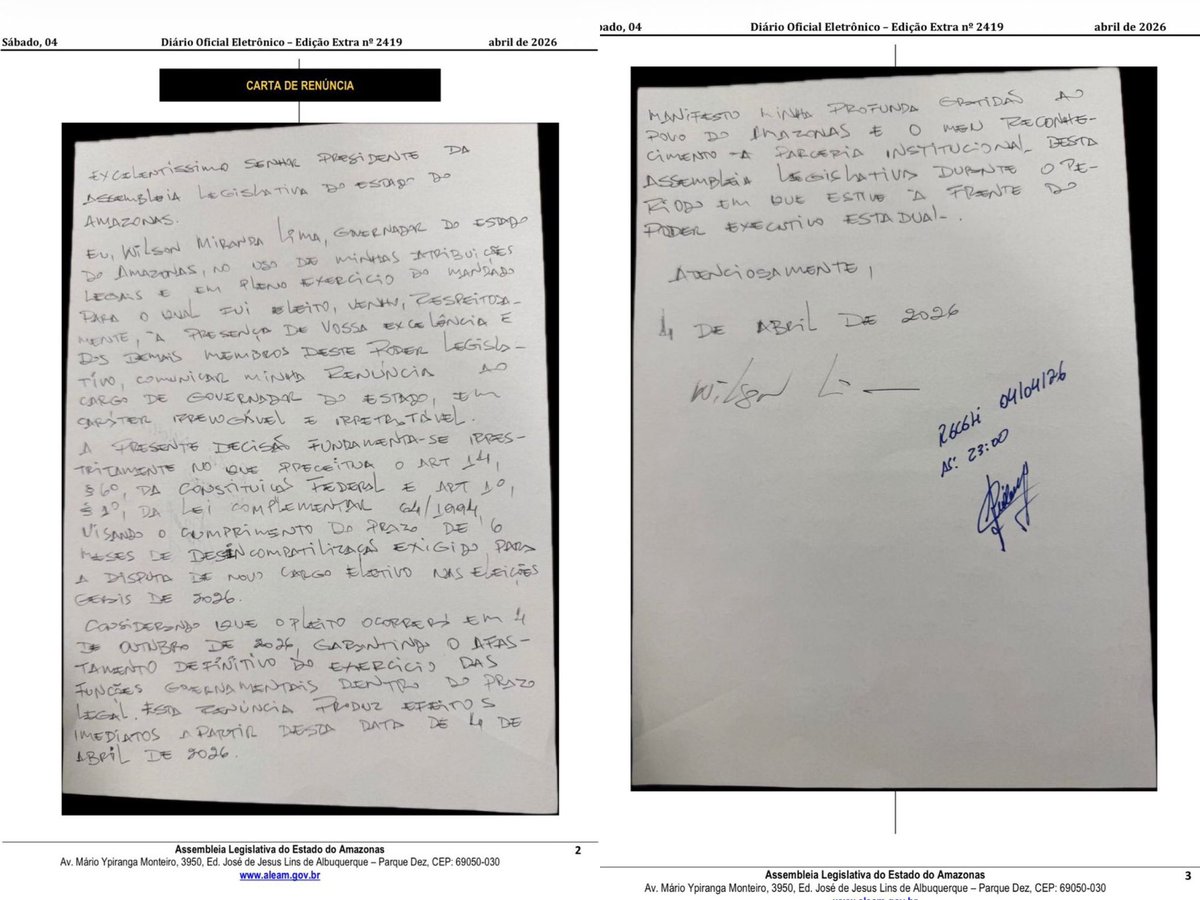 Sábado, 04 Diário Oficial Eletrônico – Edição Extra nº 2419 abril de 2026
CARTA DE RENÚNCIA
EXCELENTÍSSIMO SENHOR PRESIDENTE DA
ASSEMBLEIA LEGISLATIVA DO ESTADO DO
AMAZONAS.
EU, WILSON MIRANDA LIMA, GOVERNADOR DO ESTADO
DO AMAZONAS, NO USO DE MINHAS ATRIBUIÇÕES
LEGAIS E EM PLENO EXERCÍCIO DO MANDADO
PARA O QUAL FUI ELEITO, VENHO, RESPEITOSA-
MENTE, À PRESENÇA DE VOSSA EXCELÊNCIA E
DOS DEMAIS MEMBROS DESTE PODER LEGISLA-
TIVO, COMUNICAR MINHA RENÚNCIA AO
CARGO DE GOVERNADOR DO ESTADO, EM
CARÁTER IRREVOGÁVEL E IRRETRATÁVEL.
A PRESENTE DECISÃO FUNDAMENTA-SE IRRES-
TRITAMENTE NO QUE PRECEITUA O ART 14,
§ 6º, DA CONSTITUIÇÃO FEDERAL E ART 1º,
§ 1º, DA LEI COMPLEMENTAR 64/1994,
VISANDO O CUMPRIMENTO DO PRAZO DE 6
MESES DE DESINCOMPATILIZAÇÃO EXIGIDO PARA
A DISPUTA DE NOVO CARGO ELETIVO NAS ELEIÇÕES
GERAIS DE 2026.
CONSIDERANDO QUE O PLEITO OCORRERÁ EM 4
DE OUTUBRO DE 2026, GARANTINDO O AFAS-
TAMENTO DEFINITIVO DO EXERCÍCIO DAS
FUNÇÕES GOVERNAMENTAIS DENTRO DO PRAZO
LEGAL. ESTA RENÚNCIA PRODUZ EFEITOS
IMEDIATOS A PARTIR DESTA DATA DE 4 DE
ABRIL DE 2026.
Assembleia Legislativa do Estado do Amazonas 2
Av. Mário Ypiranga Monteiro, 3950, Ed. José de Jesus Lins de Albuquerque – Parque Dez, CEP: 69050-030
www.aleam.gov.br
ado, 04 Diário Oficial Eletrônico – Edição Extra nº 2419 abril de 2026
MANIFESTO MINHA PROFUNDA GRATIDÃO AO
POVO DO AMAZONAS E O MEU RECONHE-
CIMENTO A PARCERIA INSTITUCIONAL DESTA
ASSEMBLEIA LEGISLATIVA DURANTE O PE-
RÍODO EM QUE ESTIVE À FRENTE DO
PODER EXECUTIVO ESTADUAL.
ATENCIOSAMENTE,
4 DE ABRIL DE 2026
Wilson Li
RECEBI 04/04/26
ÀS: 23:00
Assembleia Legislativa do Estado do Amazonas 3
Av. Mário Ypiranga Monteiro, 3950, Ed. José de Jesus Lins de Albuquerque – Parque Dez, CEP: 69050-030
www.aleam.gov.br